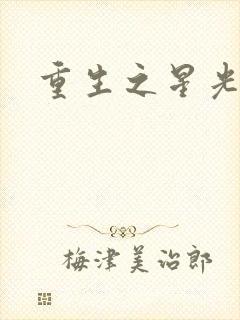 重生之星光
梅津美治郎